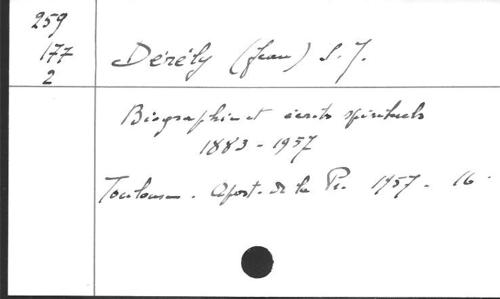 259
177
2
Dérély (Jean) S. J.
Biographie et écrits spirituels
1883 - 1957
Toulouse. Apost. de la Pr. 1957 - 16